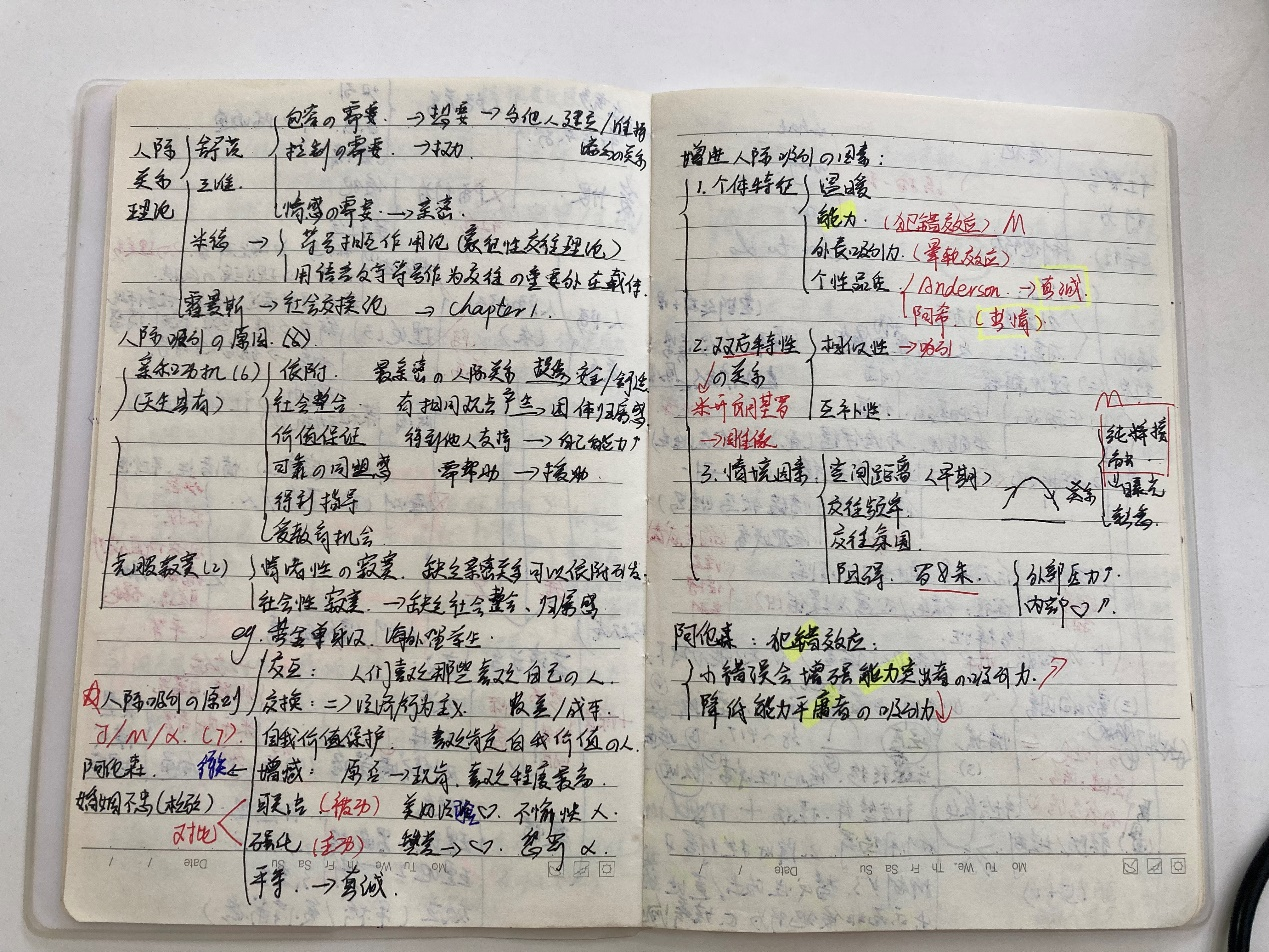 包容の需要 → 想要 → 与他人建立/维持
人际 舒茨 控制の需要 → 权力 满意の关系
关系 三维
理论 情感の需要 → 亲密
米德 → 符号相互作用论(象征性交往理论)
用语言文字等符号作为交往の重要外在载体
霍曼斯 → 社会交换论 → Chapter 1.
人际吸引の原因
亲和动机(6) 依附 最亲密の人际关系 安全/舒适
(天生具有) 社会整合 有相同观点产生→团体归属感
价值保证 得到他人支持 → 自己有能力↑
可靠の同盟感 需帮助 → 援助
得到指导
受教育机会
克服寂寞(2) 情绪性の寂寞 缺乏亲密关系可以依附引发
社会性寂寞 → 缺乏社会整合、归属感
eg. 黄金单身汉 海外留学生
交互: 人们喜欢那些喜欢自己の人
人际吸引の原则 交换: 收益/成本
J/M/α (7) 自我价值保护 喜欢肯定自我价值の人
阿伦森 ← 增减: 原否→现肯 喜欢程度最高
婚姻不忠(检验) 联结(被动) 美好经验♡ 不愉快 人
对比 强化(主动) 赞赏→♡
平等 → 真诚
Mo Tu We Th Fr Sa Su Date / /
增进人际吸引の因素:
1. 个体特征 温暖
能力 (犯错效应) M
外表吸引力 (晕轮效应)
个性品质 Anderson → 真诚
阿希 (热情)
2. 双方特性 相似性 → 吸引
の关系
互补性
M
纯粹接
触
3. 情境因素 空间距离 (早期) 关系 曝光
交往频率
交往氛围
阻碍 罗&朱 外部压力↑
内部♡↑
阿伦森: 犯错效应:
小错误会增强能力突出者の吸引力↗
降低能力平庸者の吸引力↓
Mo Tu We Th Fr Sa Su Date / /